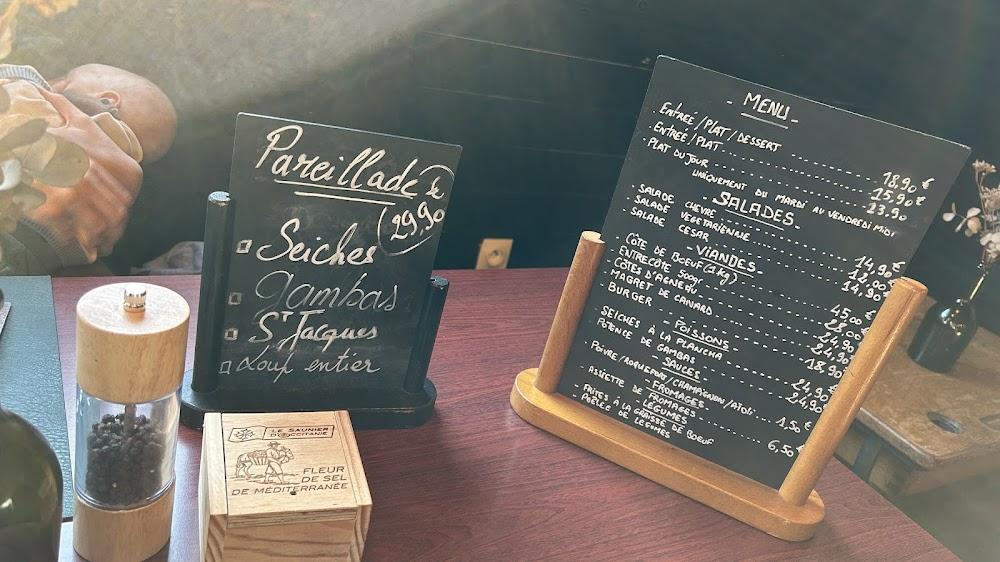 Pareillade
29,90
Seiches
Gambas
St Jacques
Loup entier
LE SAUNIER
D'OCCITANIE
FLEUR
DE SEL
DE MÉDITERRANÉE
- MENU -
. ENTRÉE/PLAT/DESSERT 18,90 €
. ENTRÉE/PLAT 15,90 €
. PLAT DU JOUR 13,90
UNIQUEMENT DU MARDI AU VENDREDI MIDI
SALADES
SALADE CHEVRE 14,90 €
SALADE VEGETARIENNE 12,00 €
SALADE CESAR 14,90
- VIANDES -
. CÔTE DE BOEUF (1 kg) 45,00 €
ENTRECÔTE 500gr 28,00
CÔTES D'AGNEAU 24,90
MAGRET DE CANARD 24,90
BURGER 18,90
POISSONS
SEICHES À LA PLANCHA 24,90
POTENCE DE GAMBAS 24,90 €
- SAUCES
POIVRE/ROQUEFORT/CHAMPIGNON/AÏOLI 1,50 €
- FROMAGES
ASSIETTE DE FROMAGES 6,50 €
LÉGUMES
FRITES À LA GRAISSE DE BOEUF
POÊLÉE DE LÉGUMES